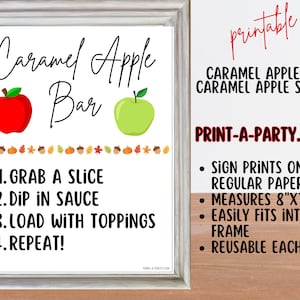 Caramel Apple
Bar
1. GRAB A SLICE
2. DIP IN SAUCE
3. LOAD WITH TOPPINGS
4. REPEAT!
PRINT-A-PARTY.COM
printable
CARAMEL APPLE
CARAMEL APPLE S
PRINT-A-PARTY.
• SIGN PRINTS ON
REGULAR PAPER
• MEASURES 8"X
• EASILY FITS INT
FRAME
• REUSABLE EACH